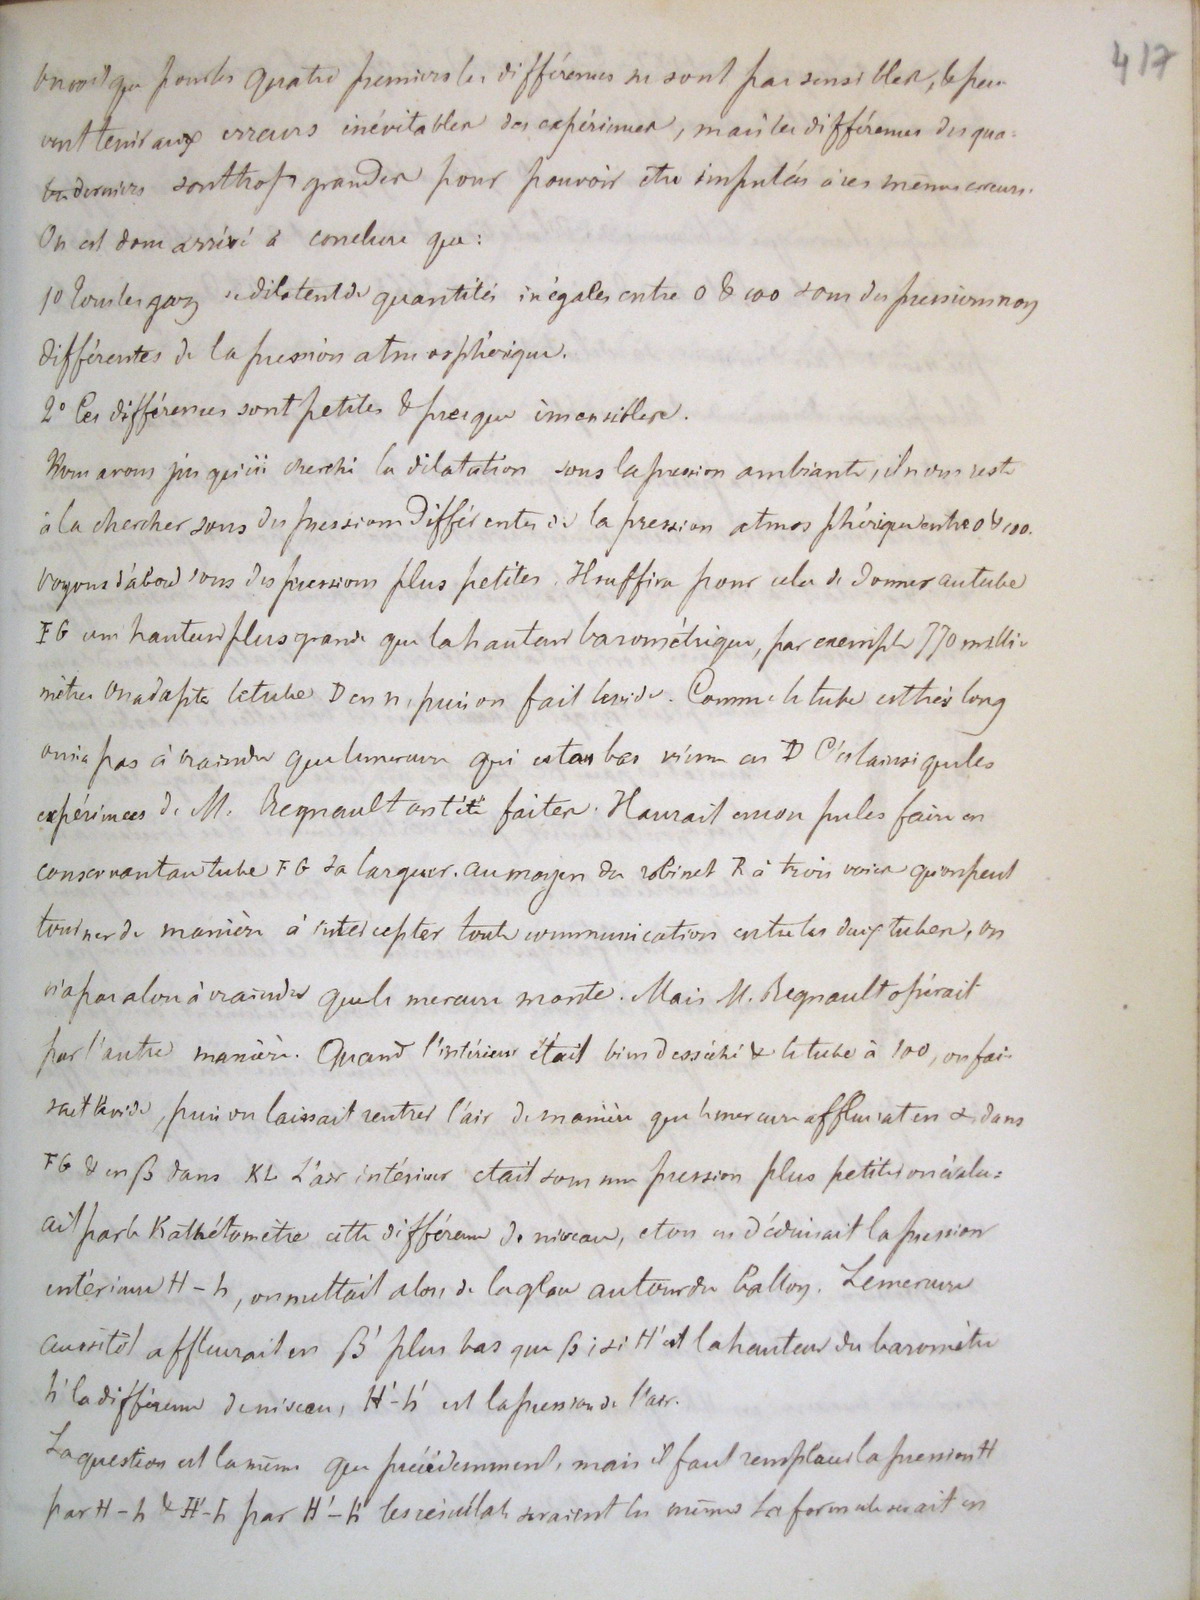 417
On voit que pour les quatre premiers les différences ne sont pas sensibles, & peu
vent tenir aux erreurs inévitables des expériences, mais les différences des qua-
tre derniers sont trop grandes pour pouvoir être imputées à ces mêmes erreurs.
On est donc arrivé à conclure que :
1o Tous les gaz se dilatent de quantités inégales entre 0 & 100 sous des pressions non
différentes de la pression atmosphérique.
2° Ces différences sont petites & presque insensibles.
Nous avons jusqu'ici cherché la dilatation sous la pression ambiante, il nous reste
à la chercher sous des pressions différentes de la pression atmosphérique entre 0 & 100.
Voyons d'abord sous des pressions plus petites. Il suffira pour cela de donner au tube
FG une hauteur plus grande que la hauteur barométrique, par exemple 770 milli-
mètres On adapte le tube D en n, puis on fait le vide. Comme le tube est très long
on n'a pas à craindre que le mercure qui est au bas vienne en D C'est ainsi que les
expériences de M. Regnault ont été faites. Il aurait encore pu les faire en
conservant au tube FG sa largeur. au moyen du robinet R à trois voies qu'on peut
tourner de manière à intercepter toute communication entre les deux tubes, on
n'a pas alors à craindre que le mercure monte. Mais M. Regnault opérait
par l'autre manière. Quand l'intérieur était bien desséché & le tube à 100, on fai-
sait le vide, puis on laissait rentrer l'air de manière que le mercure affleurat en α dans
FG & en β dans KL L'air intérieur était sous une pression plus petite on évalu-
ait par le Kathétomètre cette différence de niveau, et on en déduisait la pression
intérieure H - h, on mettait alors de la glace autour du ballon. Le mercure
aussitôt affleurait en β' plus bas que β ; si H' est la hauteur du baromètre
h' la différence de niveau, H'-h' est la pression de l'air.
La question est la même que précédemment, mais il faut remplacer la pression H
par H - h & H'-h par H'-h' les résultats seraient les mêmes La formule serait en